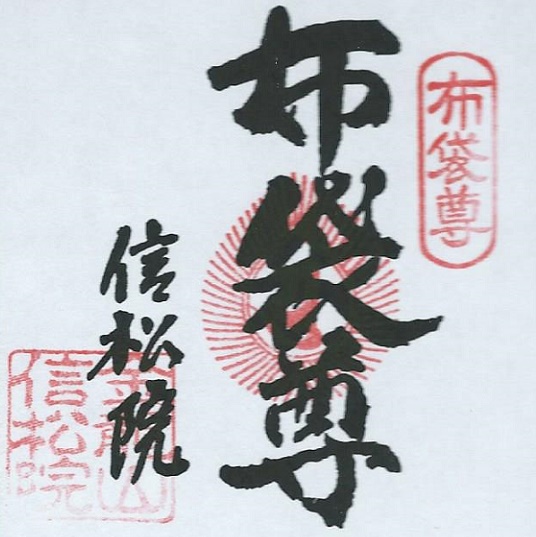 布袋尊
布袋尊
信松院
金龍山
信松院